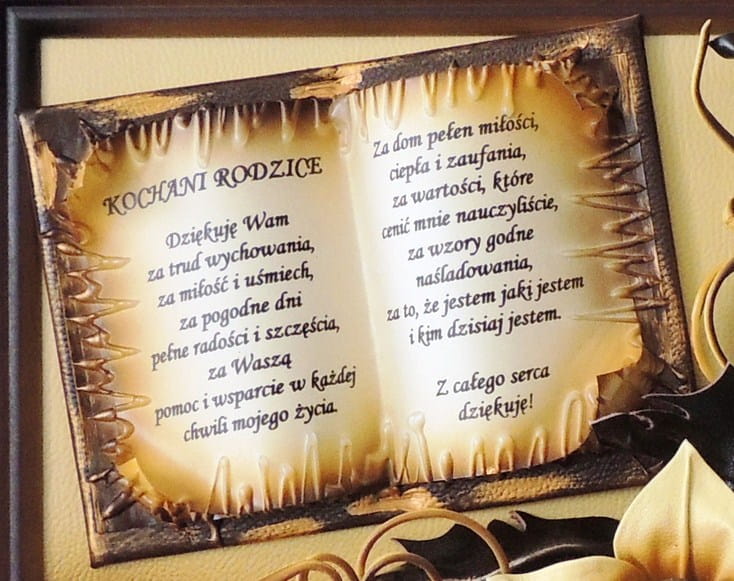 KOCHANI RODZICE
Dziękuję Wam
za trud wychowania,
za miłość i uśmiech,
za pogodne dni
pełne radości i szczęścia,
za Waszą
pomoc i wsparcie w każdej
chwili mojego życia.
Za dom pełen miłości,
ciepła i zaufania,
za wartości, które
cenić mnie nauczyliście,
za wzory godne
naśladowania,
za to, że jestem jaki jestem
i kim dzisiaj jestem.
Z całego serca
dziękuję!